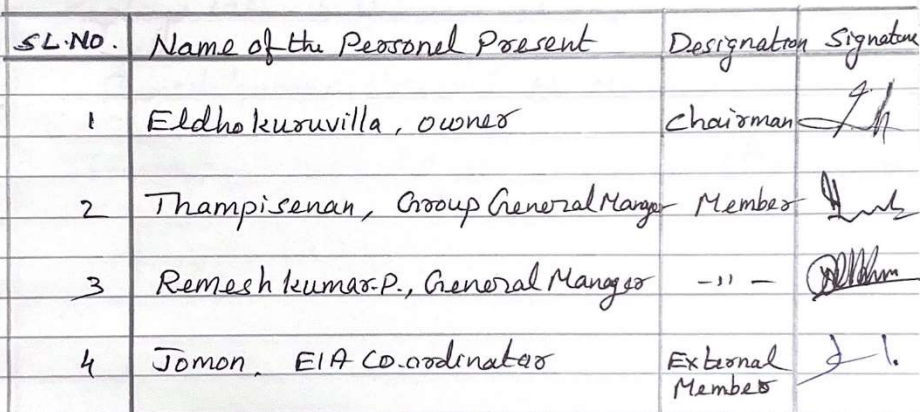 SL.NO. Name of the Personel Present Designation Signature
1 Eldho kuruvilla, owner Chairman
2 Thampisenan, Group General Manger Member
3 Remesh kumar.P., General Manager -"-
4 Jomon, EIA Co.ordinator External
Member